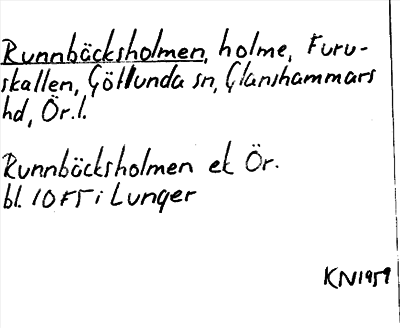 Runnbäcksholmen, holme, Furu-
skallen, Götlunda sn, Glanshammars
hd, Ör.l.
Runnbäcksholmen ek Ör.
bl. 10F5i Lunger
KN1959